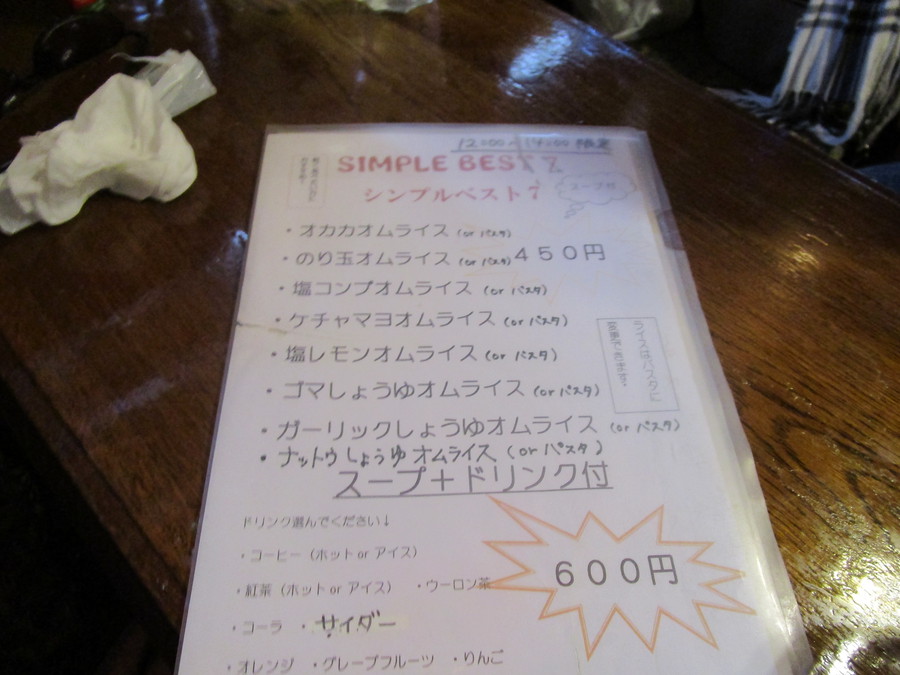 12:00〜14:00 限定
SIMPLE BEST 7
シンプルベスト7
スープ付
・オカカオムライス (or パスタ)
・のり玉オムライス (or パスタ) 450円
・塩コンブオムライス (or パスタ)
・ケチャマヨオムライス (or パスタ)
・塩レモンオムライス (or パスタ)
・ゴマしょうゆオムライス (or パスタ)
・ガーリックしょうゆオムライス (or パスタ)
・ナットウしょうゆオムライス (or パスタ)
ライスはパスタに
スープ+ドリンク付
600円
ドリンク選んでください↓
・コーヒー（ホット or アイス）
・紅茶（ホット or アイス） ・ウーロン茶
・コーラ ・サイダー
・オレンジ ・グレープフルーツ ・りんご